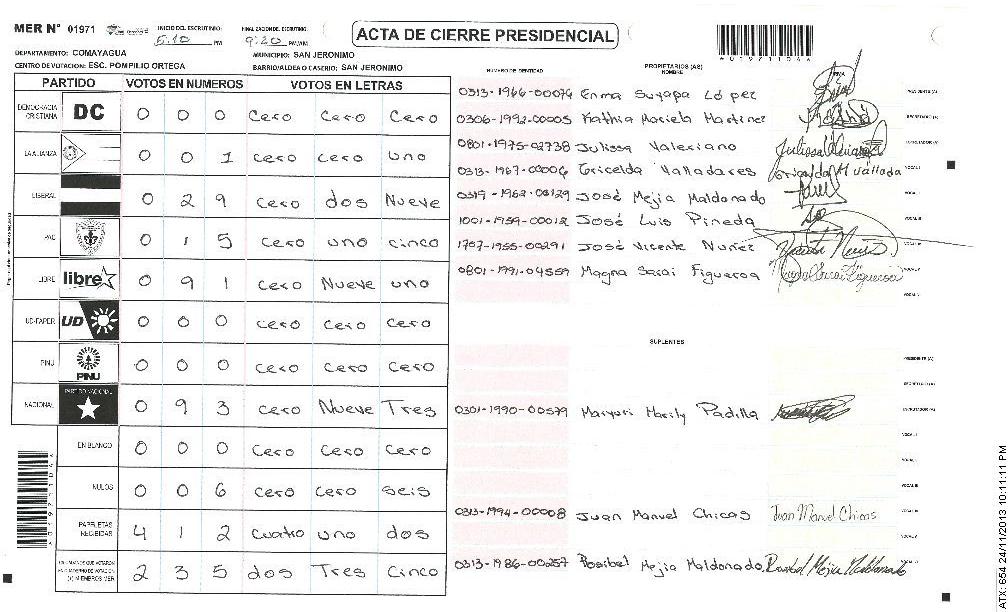 MER N° 01971 INICIO DEL ESCRUTINIO: 5:10 PM FINALIZACION DEL ESCRUTINIO: 9:20 PM/AM. ACTA DE CIERRE PRESIDENCIAL
DEPARTAMENTO: COMAYAGUA MUNICIPIO: SAN JERONIMO
CENTRO DE VOTACION: ESC. POMPILIO ORTEGA BARRIO/ALDEA O CASERIO: SAN JERONIMO
PARTIDO VOTOS EN NUMEROS VOTOS EN LETRAS
DEMOCRACIA CRISTIANA DC 0 0 0 Cero Cero Cero
LA ALIANZA 0 0 1 cero cero uno
LIBERAL 0 2 9 cero dos Nueve
PAC 0 1 5 cero uno cinco
LIBRE libre 0 9 1 cero Nueve uno
UD-FAPER UD 0 0 0 cero cero cero
PINU PINU 0 0 0 cero cero cero
NACIONAL PARTIDO NACIONAL 0 9 3 cero Nueve Tres
EN BLANCO 0 0 0 cero cero cero
NULOS 0 0 6 cero cero seis
PAPELETAS RECIBIDAS 4 1 2 cuatro uno dos
CIUDADANOS QUE VOTARON EN CUADERNO DE VOTACION (+) MIEMBROS MER 2 3 5 dos Tres Cinco
NUMERO DE IDENTIDAD PROPIETARIOS (AS) NOMBRE FIRMA
0313-1966-00074 Enma Suyapa López PRESIDENTE (A)
0306-1992-00005 Kathia Mariela Martinez SECRETARIO (A)
0801-1975-02738 Julissa Valeriano ESCRUTADOR (A)
0313-1967-00006 Gricelda Valladares VOCAL I
0319-1962-00129 José Mejia Maldonado VOCAL II
1001-1959-00012 José Luis Pineda VOCAL III
1707-1955-00291 José Vicente Nuñez VOCAL IV
0801-1991-04559 Magna Sarai Figueroa VOCAL V
SUPLENTES
PRESIDENTE (A)
SECRETARIO (A)
0301-1990-00579 Maryuri Marily Padilla ESCRUTADOR (A)
VOCAL I
VOCAL II
VOCAL III
0313-1994-00008 Juan Manuel Chicas Juan Manuel Chicas VOCAL IV
VOCAL V
0313-1986-00257 Rosibel Mejia Maldonado. Rosibel Mejia Maldonado
ATX: 654 24/11/2013 10:11:11 PM